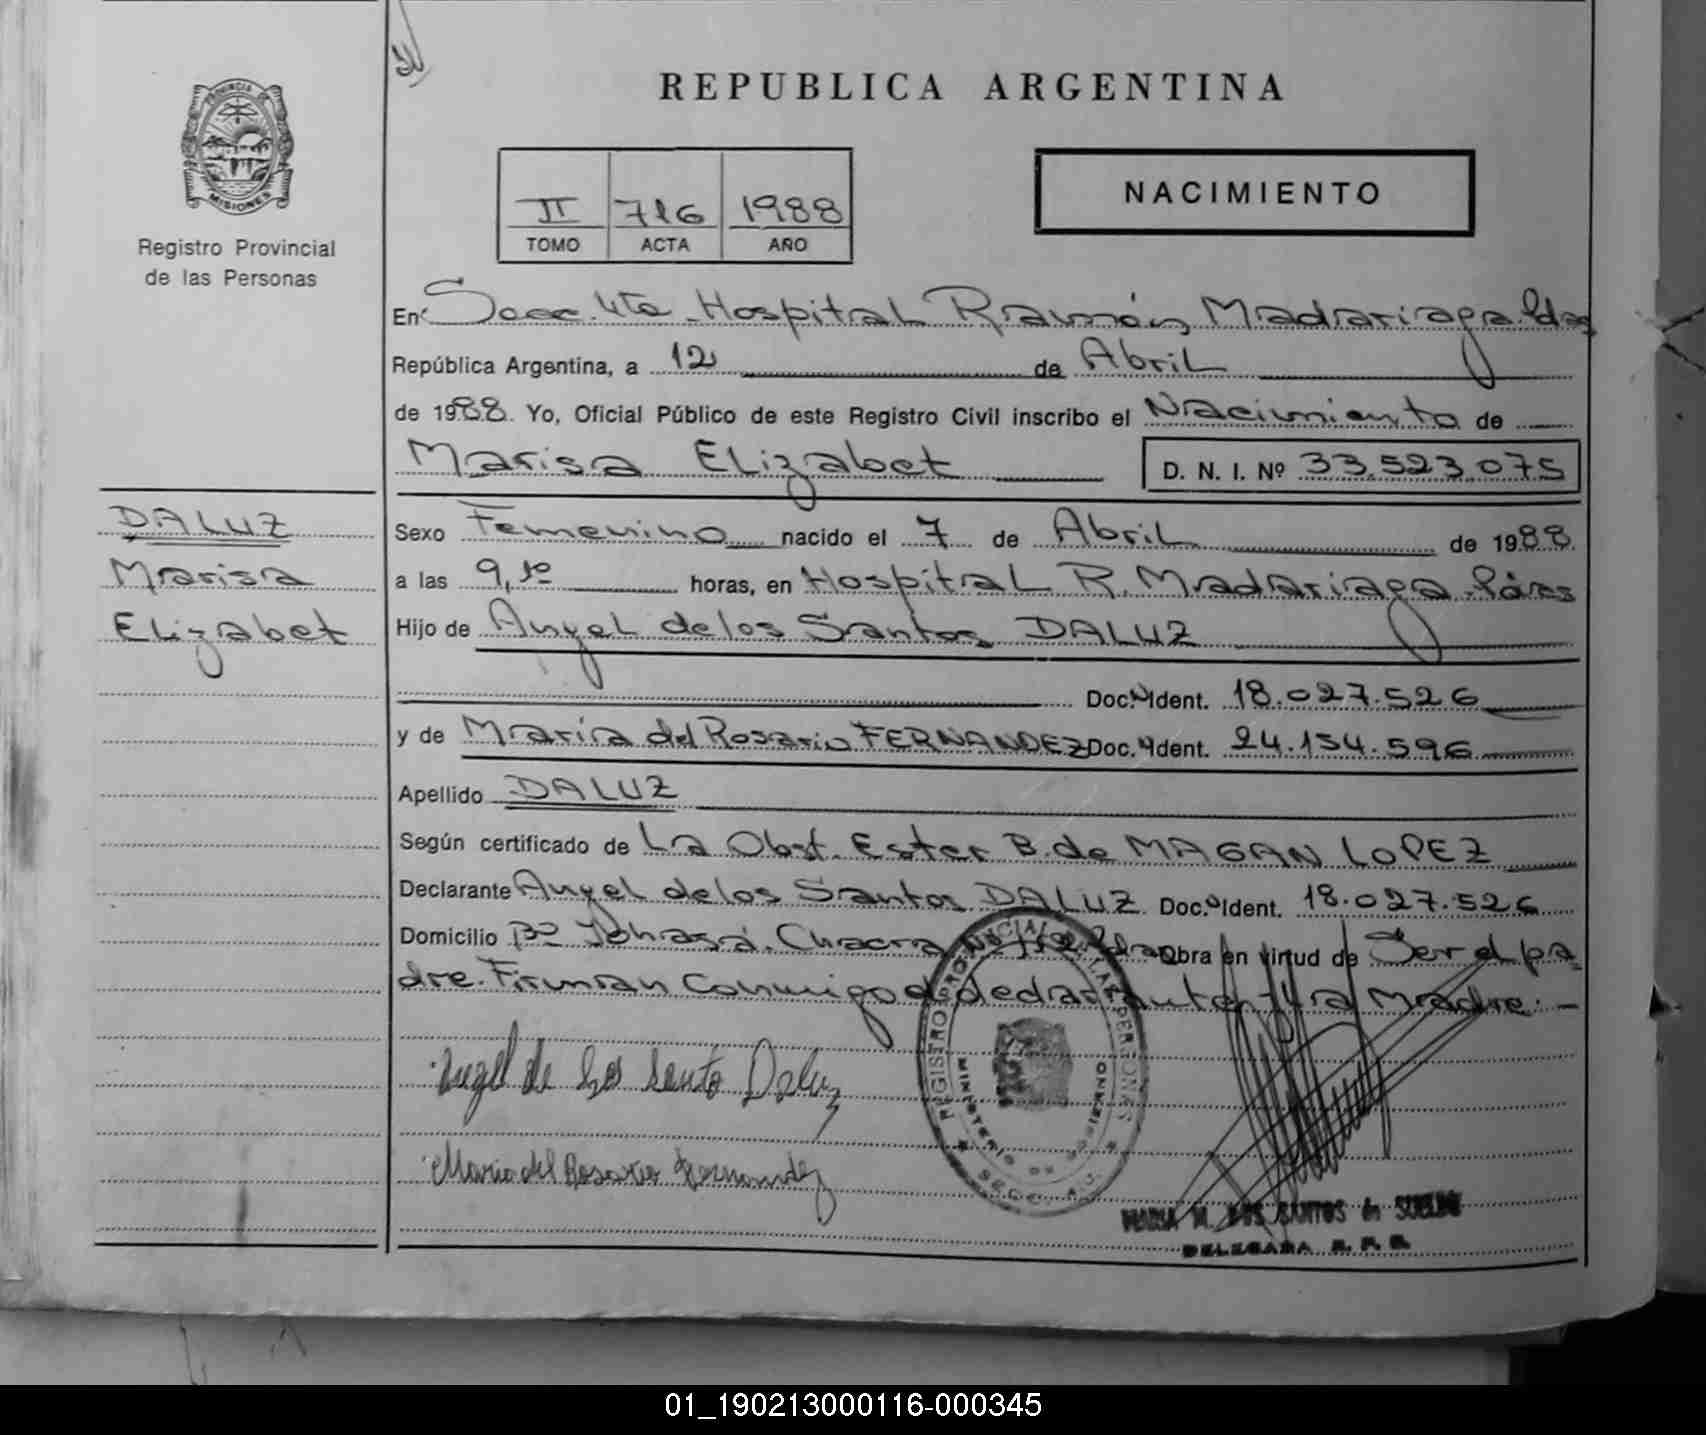 REPUBLICA ARGENTINA
PROVINCIA DE
MISIONES
Registro Provincial
de las Personas
II 716 1988
TOMO ACTA AÑO
NACIMIENTO
En Secc. 4ta. Hospital Ramón Madariaga. Pdas
República Argentina, a 12 de Abril
de 1988. Yo, Oficial Público de este Registro Civil inscribo el Nacimiento de
Marisa Elizabet D. N. I. Nº 33.523.075
DALUZ
Marisa
Elizabet
Sexo Femenino nacido el 7 de Abril de 1988.
a las 9,30 horas, en Hospital R. Madariaga.
Hijo de Angel de los Santos DALUZ
Doc. N Ident. 18.027.526
y de Maria del Rosario FERNANDEZ Doc. N Ident. 24.154.596
Apellido DALUZ
Según certificado de La Obst. Ester B. de MAGAN LOPEZ
Declarante Angel de los Santos DALUZ Doc. Ident. 18.027.526
Domicilio Bº Chacra Obra en virtud de Ser el pa
dre. Firman Conmigo el declarante y la Madre. -
Angel de Los Santo Daluz
Maria del Rosario Fernandez
REGISTRO PROVINCIAL DE LAS PERSONAS
MINISTERIO DE GOBIERNO
MARIA M. DOS SANTOS de
DELEGADA R. P. P.
01_190213000116-000345